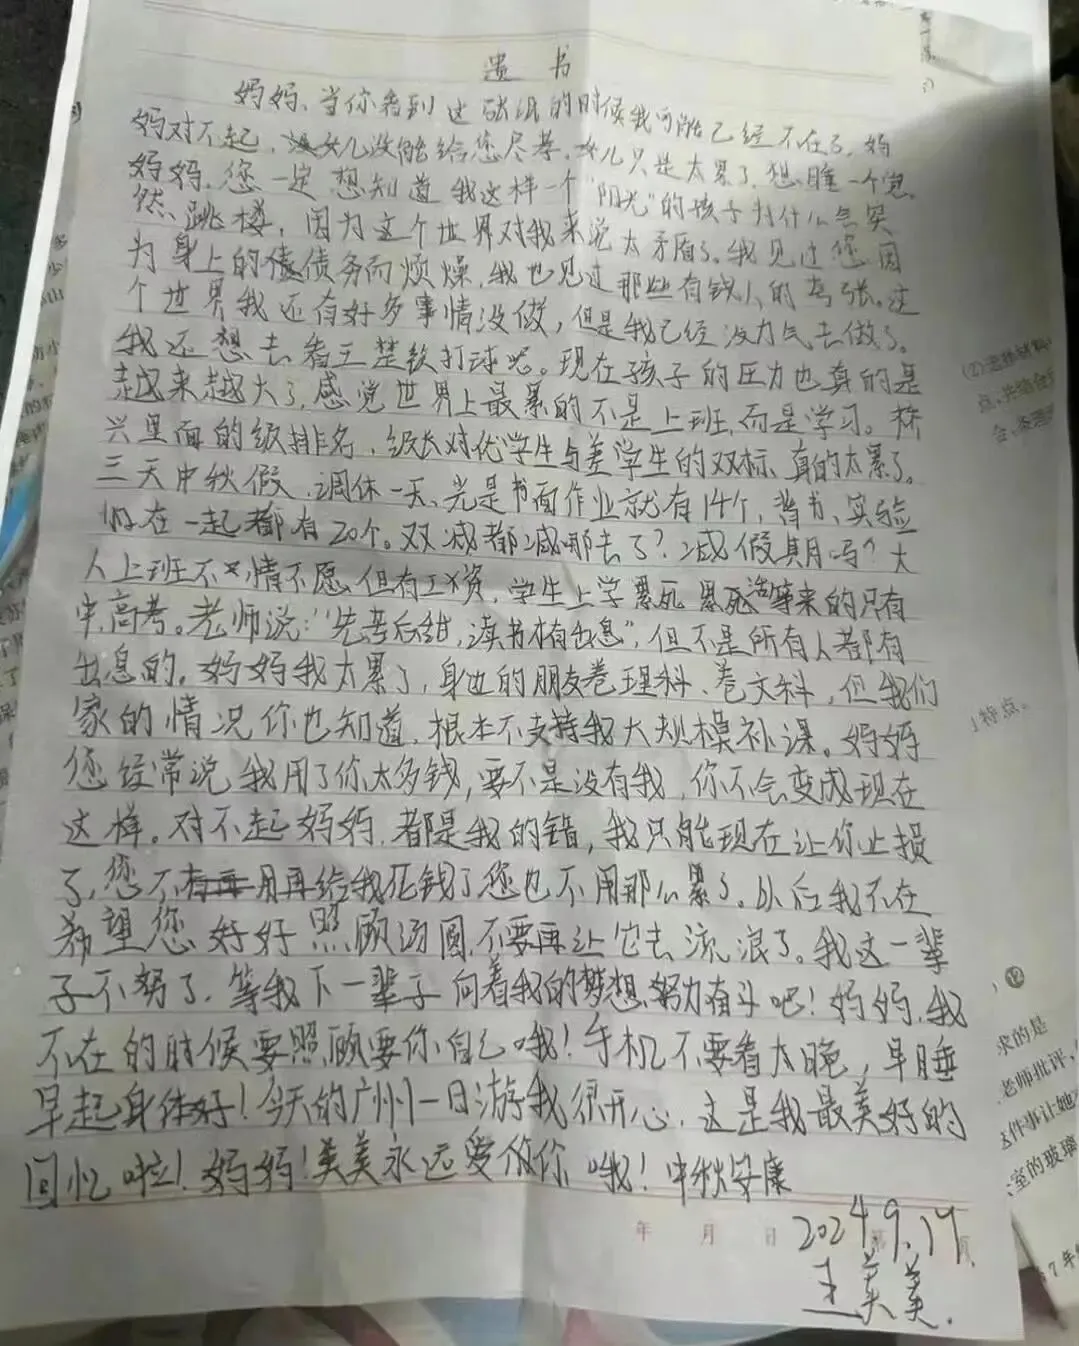 遗 书
妈妈、当你看到这张纸的时候我可能已经不在了。妈
妈对不起，女儿没能给您尽孝，女儿只是太累了，想睡一个觉
妈妈，您一定想知道我这样一个"阳光"的孩子为什么会突
然跳楼，因为这个世界对我来说太矛盾了。我见过您因
为身上的债务而烦燥，我也见过那些有钱人的夸张。这
个世界我还有好多事情没做，但是我已经没力气去做了。
我还想去看王楚钦打球呢。现在孩子的压力也真的是
越来越大了，感觉世界上最累的不是上班，而是学习。林
兴里面的级排名，级长对优学生与差学生的双标、真的太累了。
三天中秋假，调休一天、光是书面作业就有14个，背书、实验
加在一起都有20个。双减都减哪去了？减假期吗？大
人上班不情不愿，但有工资，学生上学累死累死活等来的只有
中高考。老师说："先苦后甜，读书才有出息"，但不是所有人都有
出息的。妈妈我太累了，身边的朋友卷理科、卷文科，但我们
家的情况你也知道，根本不支持我大规模补课。妈妈
您经常说我用了你太多钱，要不是没有我，你不会变成现在
这样。对不起妈妈，都是我的错，我只能现在让你止损
了，您不用再给我花钱了您也不用那么累了。以后我不在
希望您好好照顾汤圆，不要再让它去流浪了。我这一辈
子不努了，等我下一辈子向着我的梦想努力奋斗吧！妈妈，我
不在的时候要照顾要你自己哦！手机不要看太晚，早睡
早起身体好！今天的广州一日游我很开心，这是我最美好的
回忆啦！妈妈！美美永远爱你 哦！中秋安康
年 月 日 第 页
2024.9.17
王美美.
多
少
(2)选择材料
点、共结合
会、条理
特点。
⑫
求的是
老师批评，
这件事让她
室的玻璃
7年